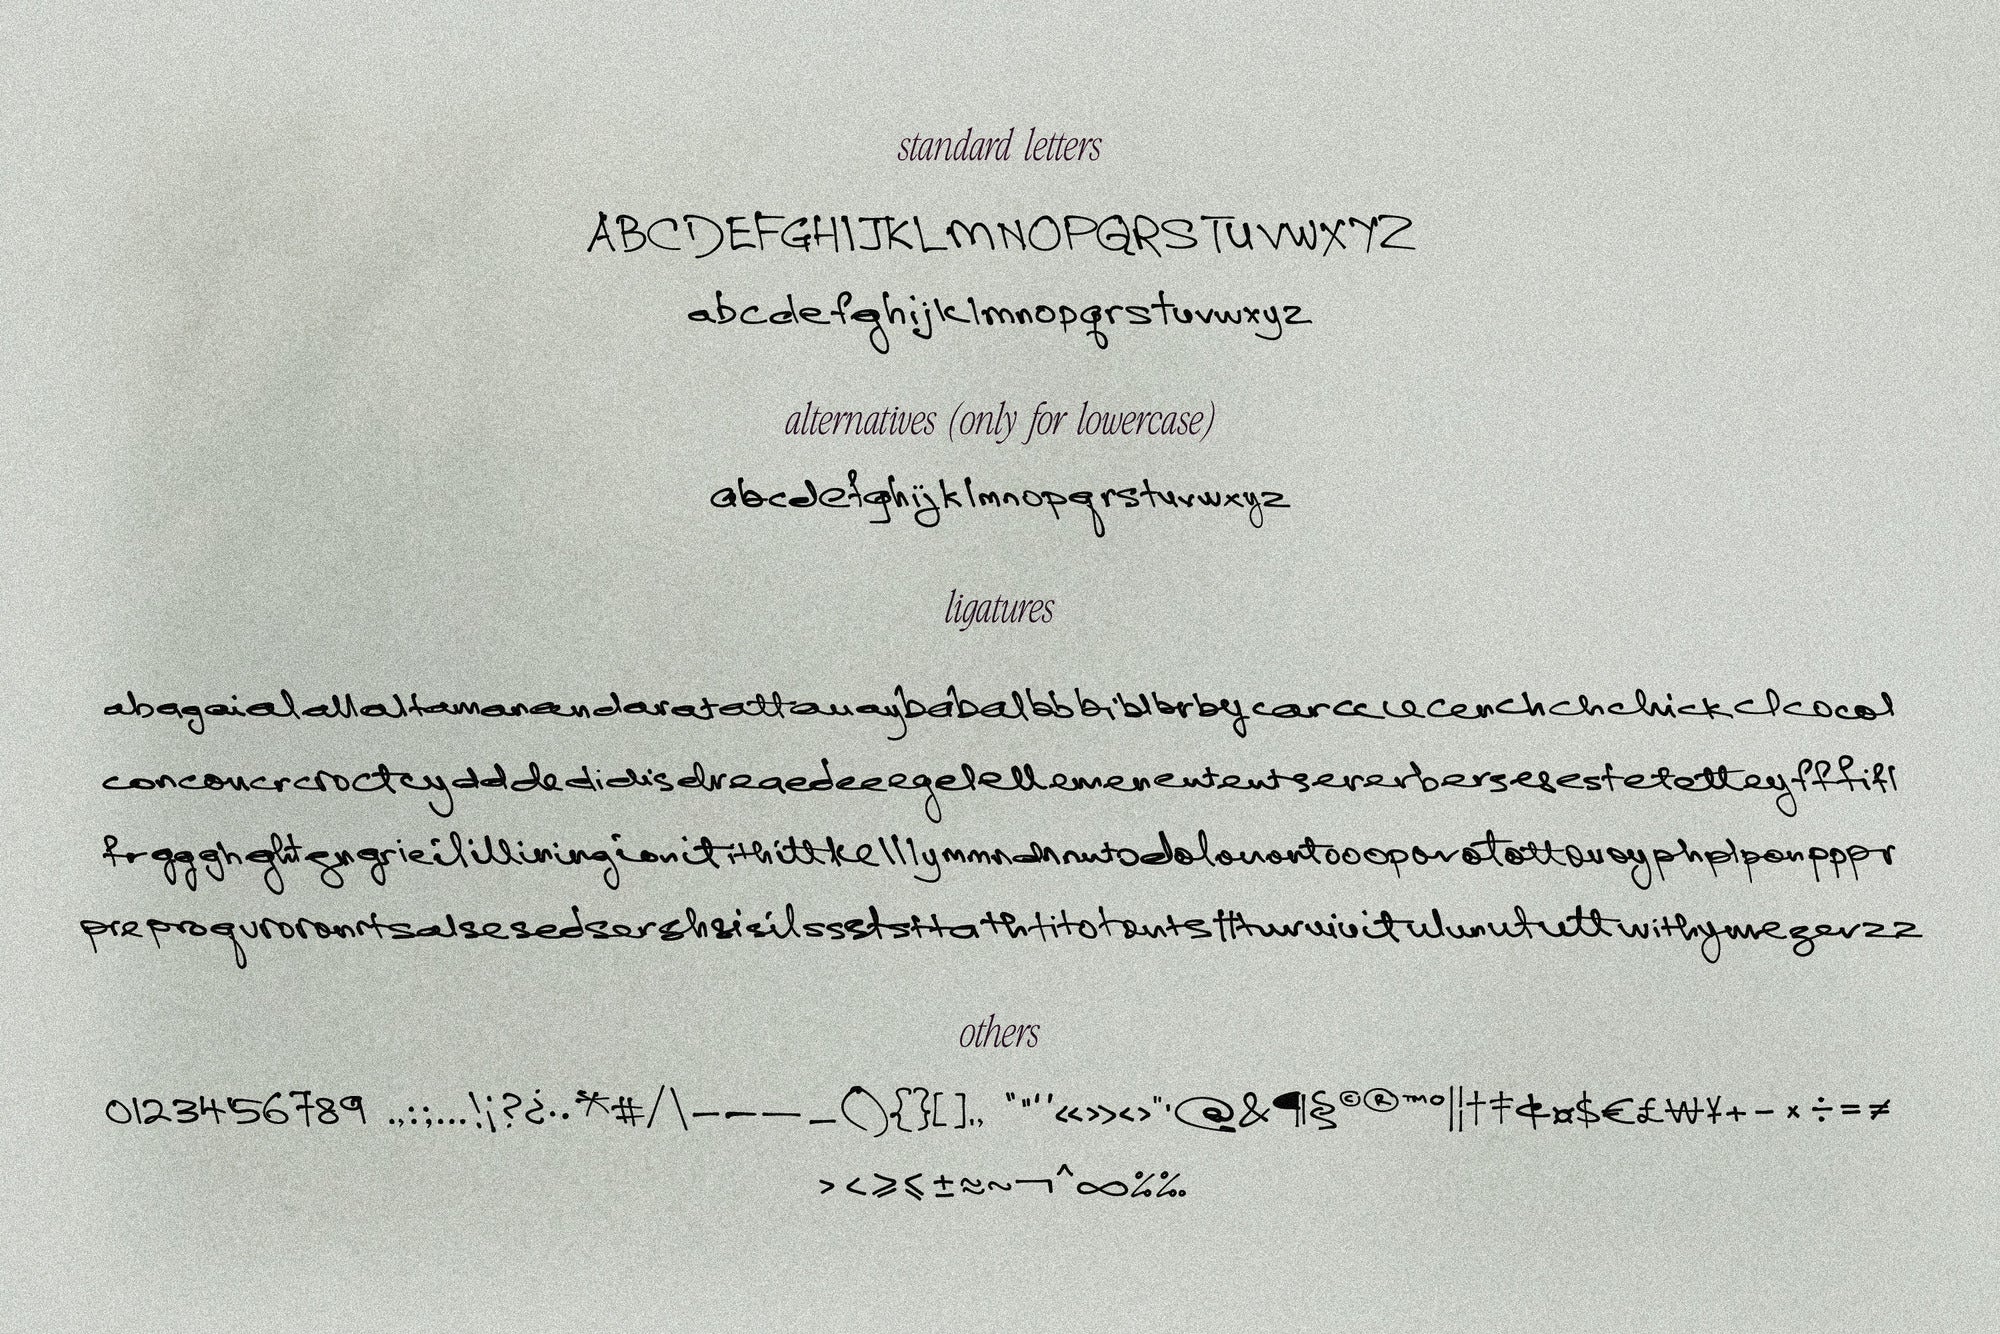 standard letters
ABCDEFGHIJKLMNOPQRSTUVWXYZ
abcdefghijklmnopqrstuvwxyz
alternatives (only for lowercase)
abcdefghijklmnopqrstuvwxyz
ligatures
abagaialallaltamananandaratattauaybabalbbbiblbrbycarccciecenchchchickclcocol
conconcrcroctcydddedidisdreaedeeegelellemenententserererbersesestetettteyfffifl
frggghghtgngrieililliningionitithittkelllymmndnnntodolouontooopororatottouoyphplponpppr
preproqurorontsalsesedsershsisilssststtathtitotontsttturuivitulunututtwithymezerzz
others
0123456789 .,:;...!¡?¿··*#/\-–—_(){}[]‚„ “”‘’«»‹›"'@&¶§©®™°|¦†‡¢¤$€£₩¥+−×÷=≠
><≥≤±≈~¬^∞%‰